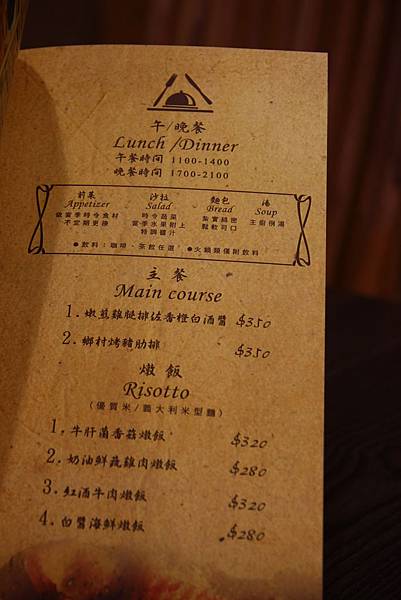 午/晚餐
Lunch /Dinner
午餐時間 1100-1400
晚餐時間 1700-2100
前菜 沙拉 麵包 湯
Appetizer Salad Bread Soup
依當季時令食材 時令蔬菜 紮實綿密 主廚例湯
不定期更換 當季水果附上 鬆軟可口
特調醬汁
●飲料：咖啡、茶飲任選 ●火鍋類僅附飲料
主餐
Main course
1.嫩煎雞腿排佐香橙白酒醬 $350
2.鄉村烤豬肋排 $350
燉飯
Risotto
(優質米/義大利米型麵)
1.牛肝菌香菇燉飯 $320
2.奶油鮮蔬雞肉燉飯 $280
3.紅酒牛肉燉飯 $320
4.白醬海鮮燉飯 $280